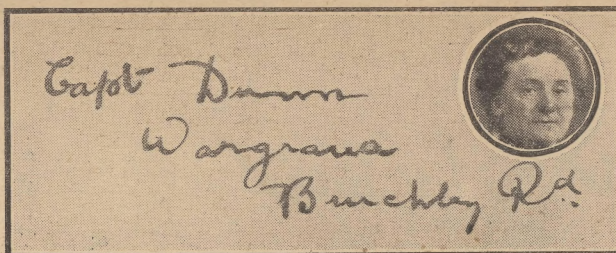 Capt Dunn
Wargrave
Brinchley Rd.